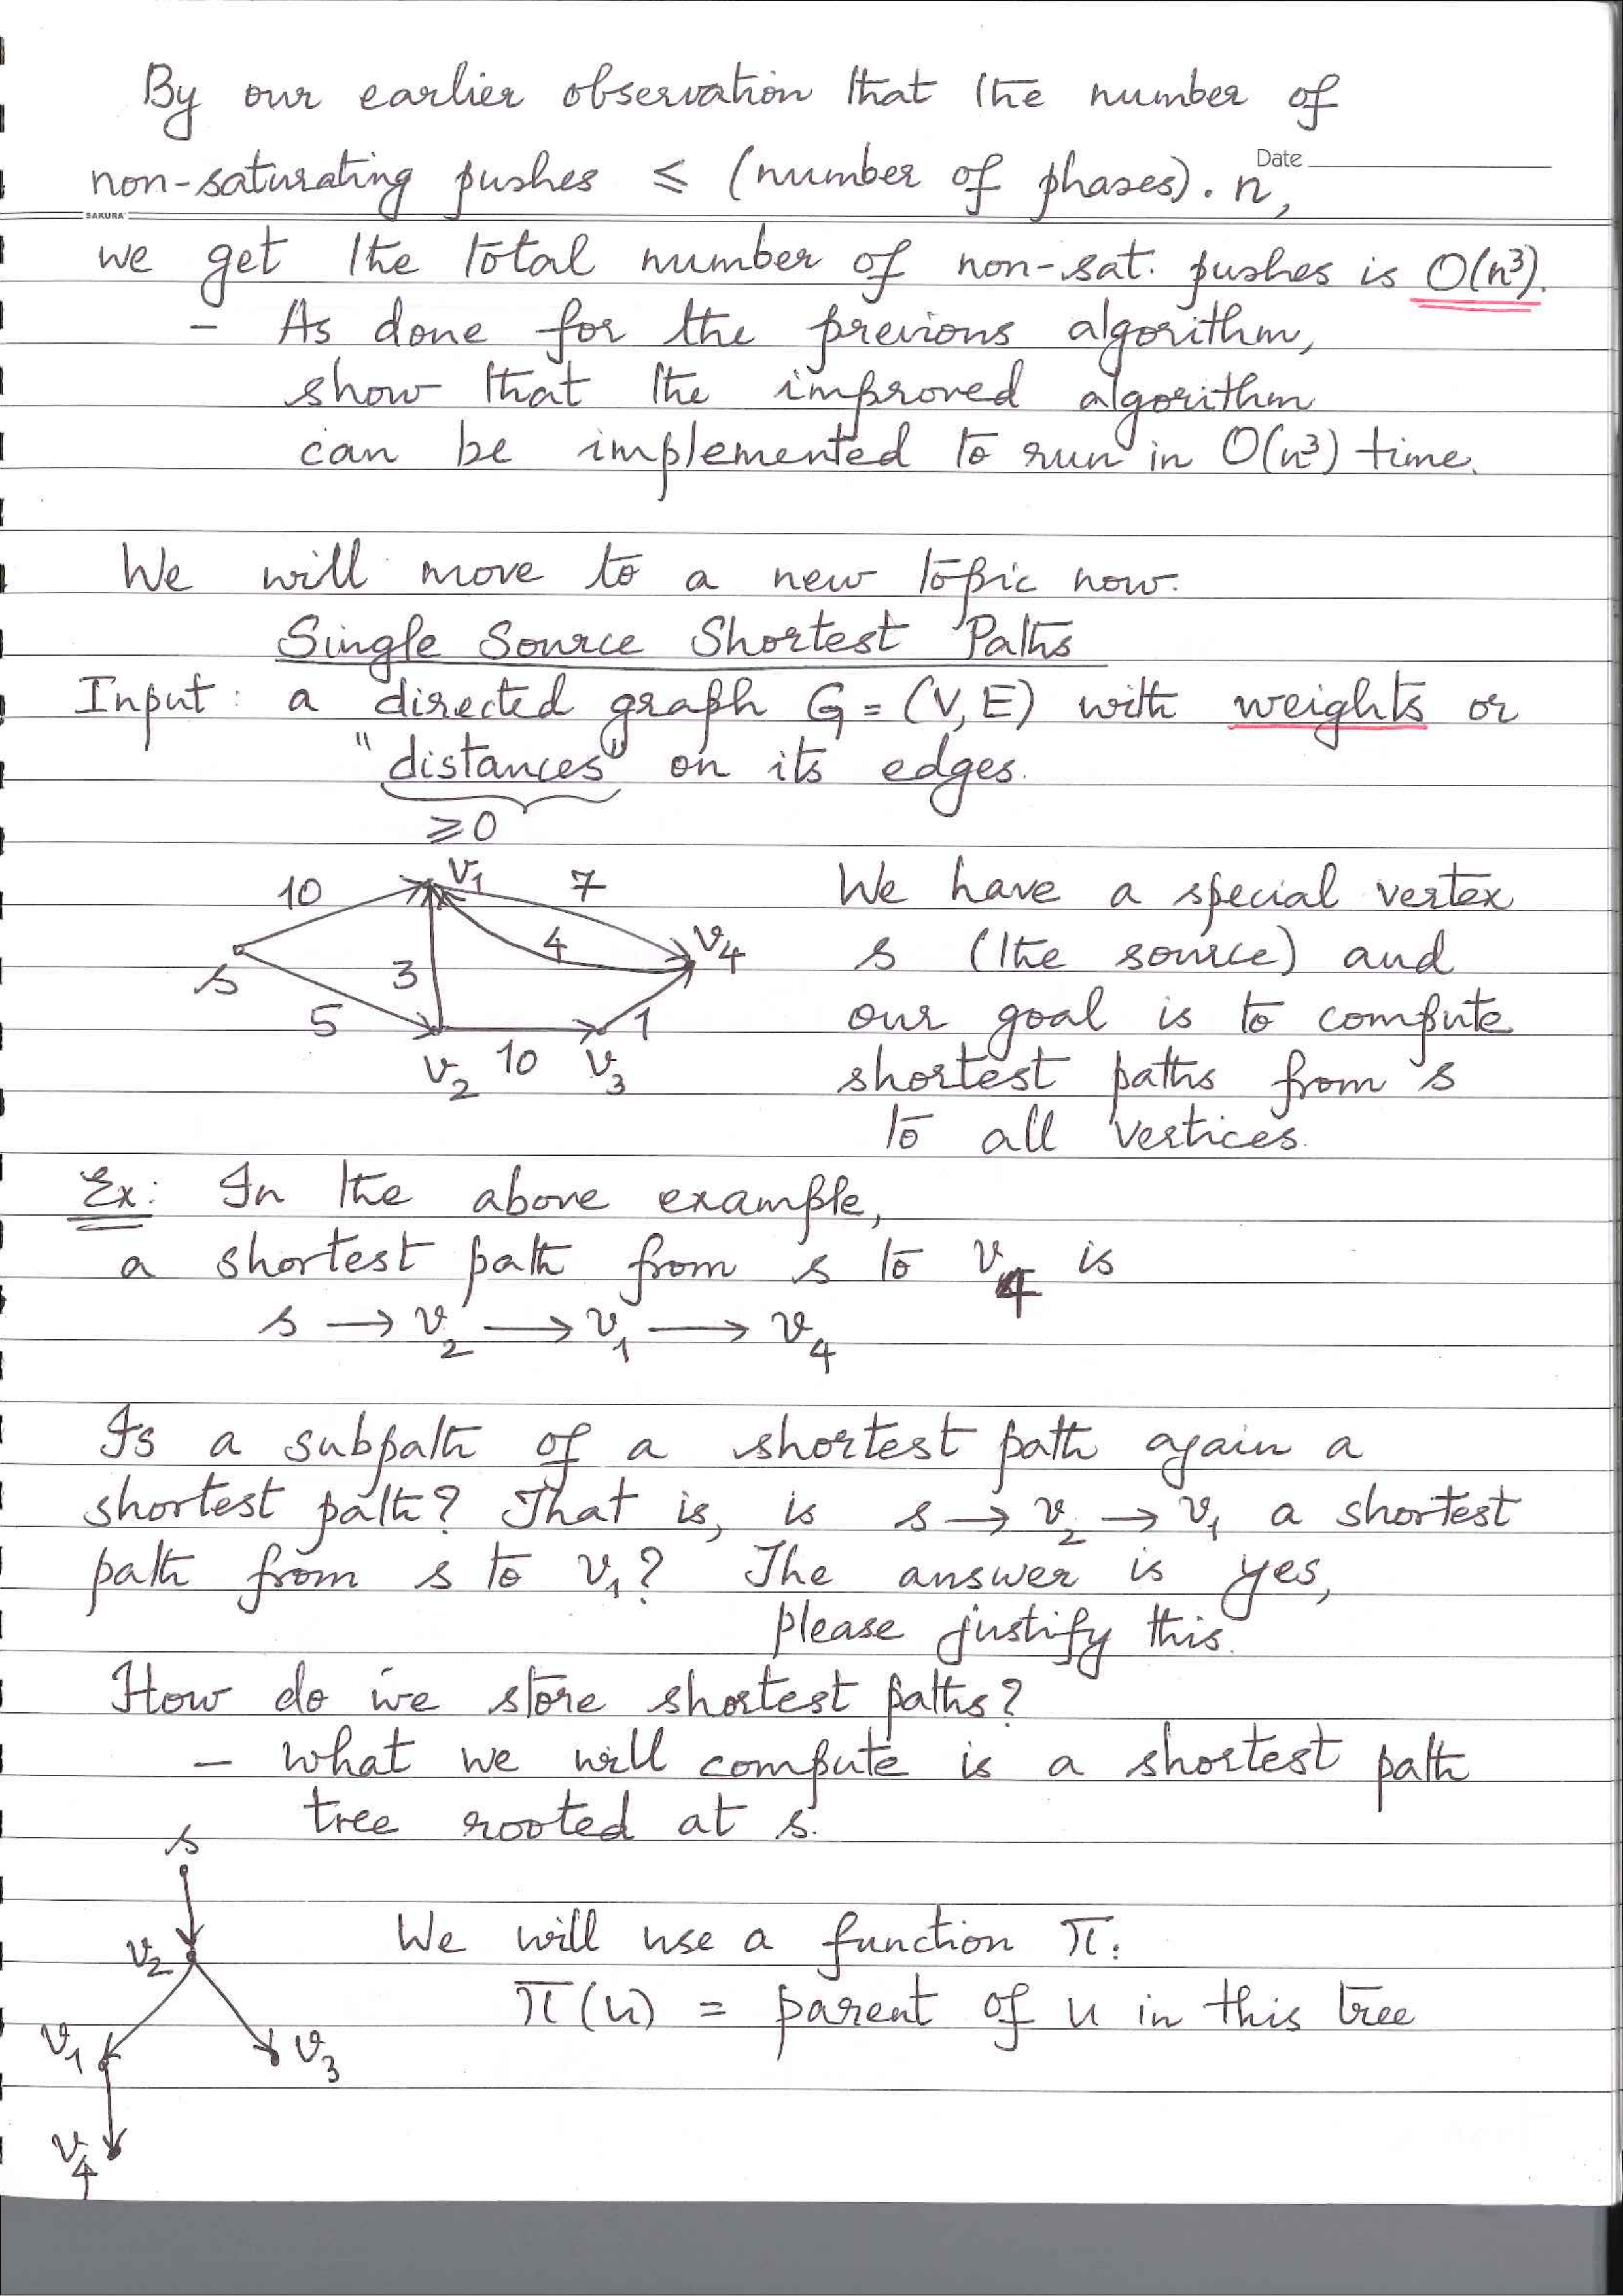 By our earlier observation that the number of
Date
non-saturating pushes ≤ (number of phases). n,
SAKURA
we get the total number of non-sat. pushes is O(n³).
- As done for the previous algorithm,
show that the improved algorithm
can be implemented to run in O(n³) time.
We will move to a new topic now.
Single Source Shortest Paths
Input: a directed graph G = (V, E) with weights or
"distances" on its edges.
≥0
10 v₁ 7
s 3 4 v₄
5 1
v₂ 10 v₃
We have a special vertex
s (the source) and
our goal is to compute
shortest paths from s
to all vertices.
Ex: In the above example,
a shortest path from s to v₄ is
s → v₂ → v₁ → v₄
Is a subpath of a shortest path again a
shortest path? That is, is s → v₂ → v₁ a shortest
path from s to v₁? The answer is yes,
please justify this.
How do we store shortest paths?
- what we will compute is a shortest path
tree rooted at s.
s
v₂
v₁ v₃
v₄
We will use a function π:
π(u) = parent of u in this tree